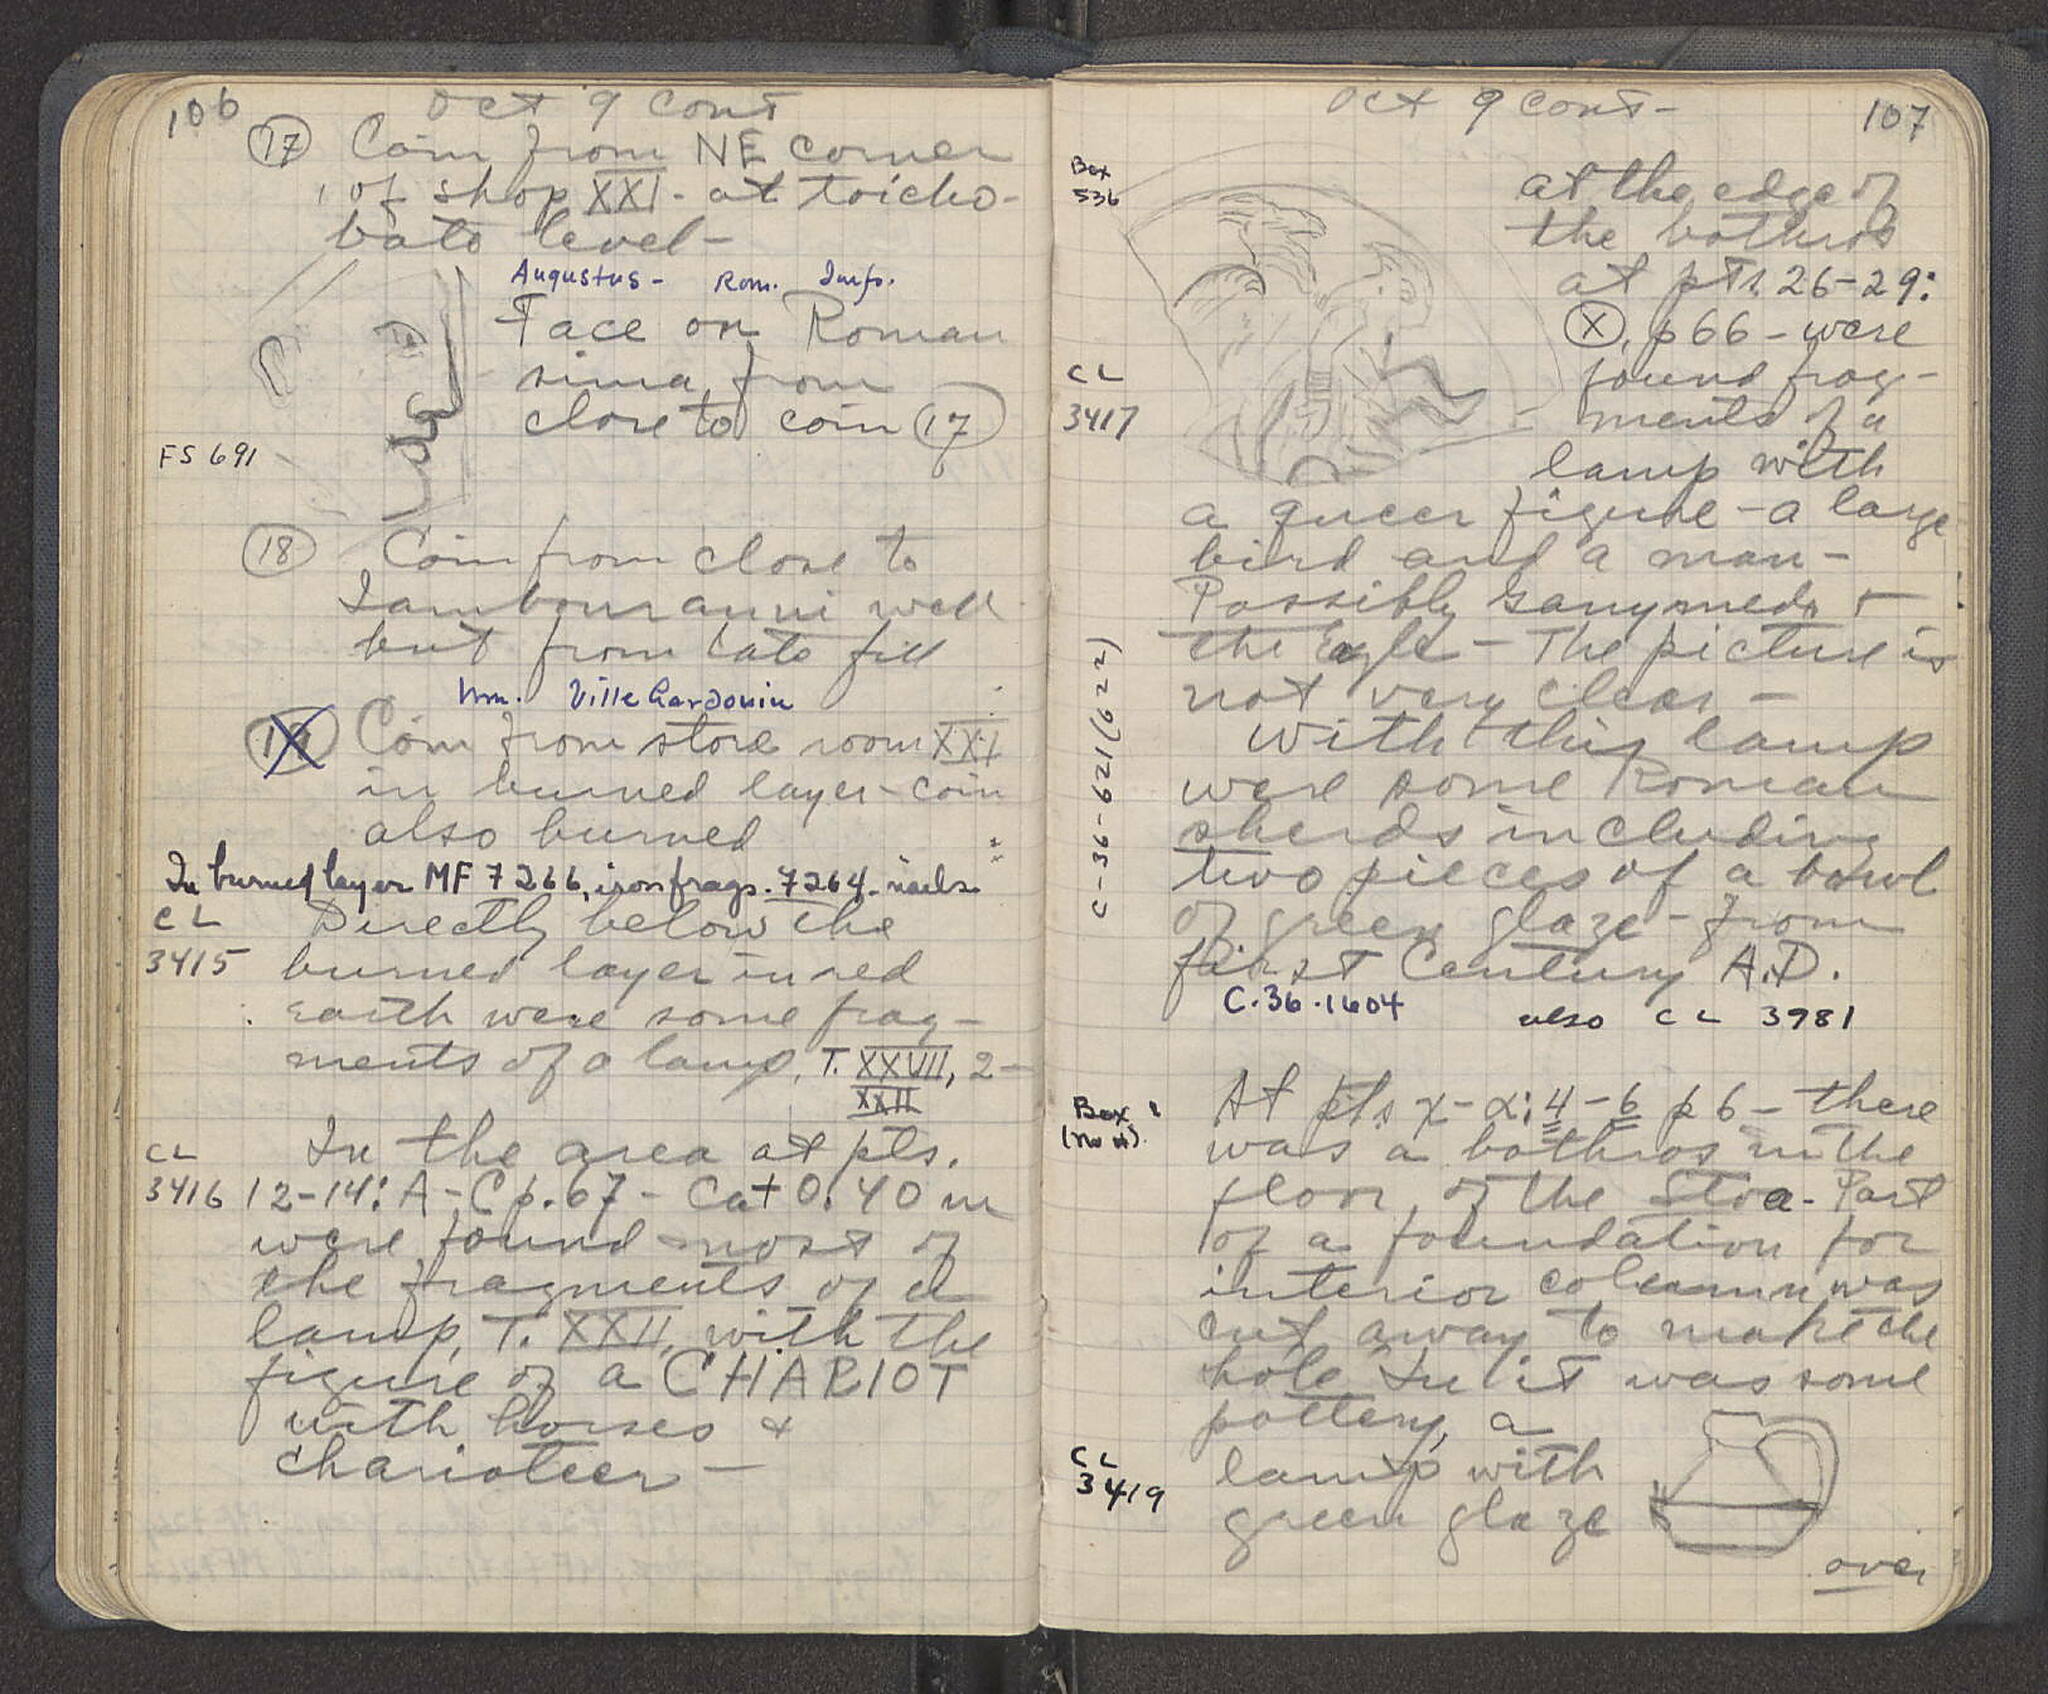 106
Oct 9 cont
17 Coin from NE corner
of shop XXI - at toicho-
bate level -
Augustus - Rom. Imp.
Face on Roman
sima from
close to coin 17
FS 691
18 Coin from close to
well
but from late fill
Wm. Villehardouin
19 Coin from store room XXI
in burned layer - coin
also burned
In burned layer MF 7266, iron frags. 7264 - nails
CL
3415
Directly below the
burned layer in red
earth were some frag-
ments of a lamp, T. XXVII, 2 -
XXII
CL
3416
In the area at pts.
12-14: A-C p. 67 - Cat 0.40 m
were found most of
the fragments of a
lamp, T. XXII, with the
figure of a CHARIOT
with horses &
charioteer -
107
Oct 9 cont -
Box
536
at the edge of
the bothros
at pts 26-29:
X, p 66 - were
found frag-
ments of a
lamp with
CL
3417
a queer figure - a large
bird and a man -
Possibly Ganymede &
the Eagle - The picture is
not very clear -
With this lamp
were some Roman
sherds including
two pieces of a bowl
of green glaze - from
first Century A.D.
C-36-621 (622)
C.36.1604
also CL 3981
Box
(no #)
At pts χ-α: 4-6 p 6 - there
was a bothros in the
floor of the Stoa - Part
of a foundation for
interior column was
cut away to make the
hole In it was some
pottery, a
CL
3419
lamp with
green glaze
over